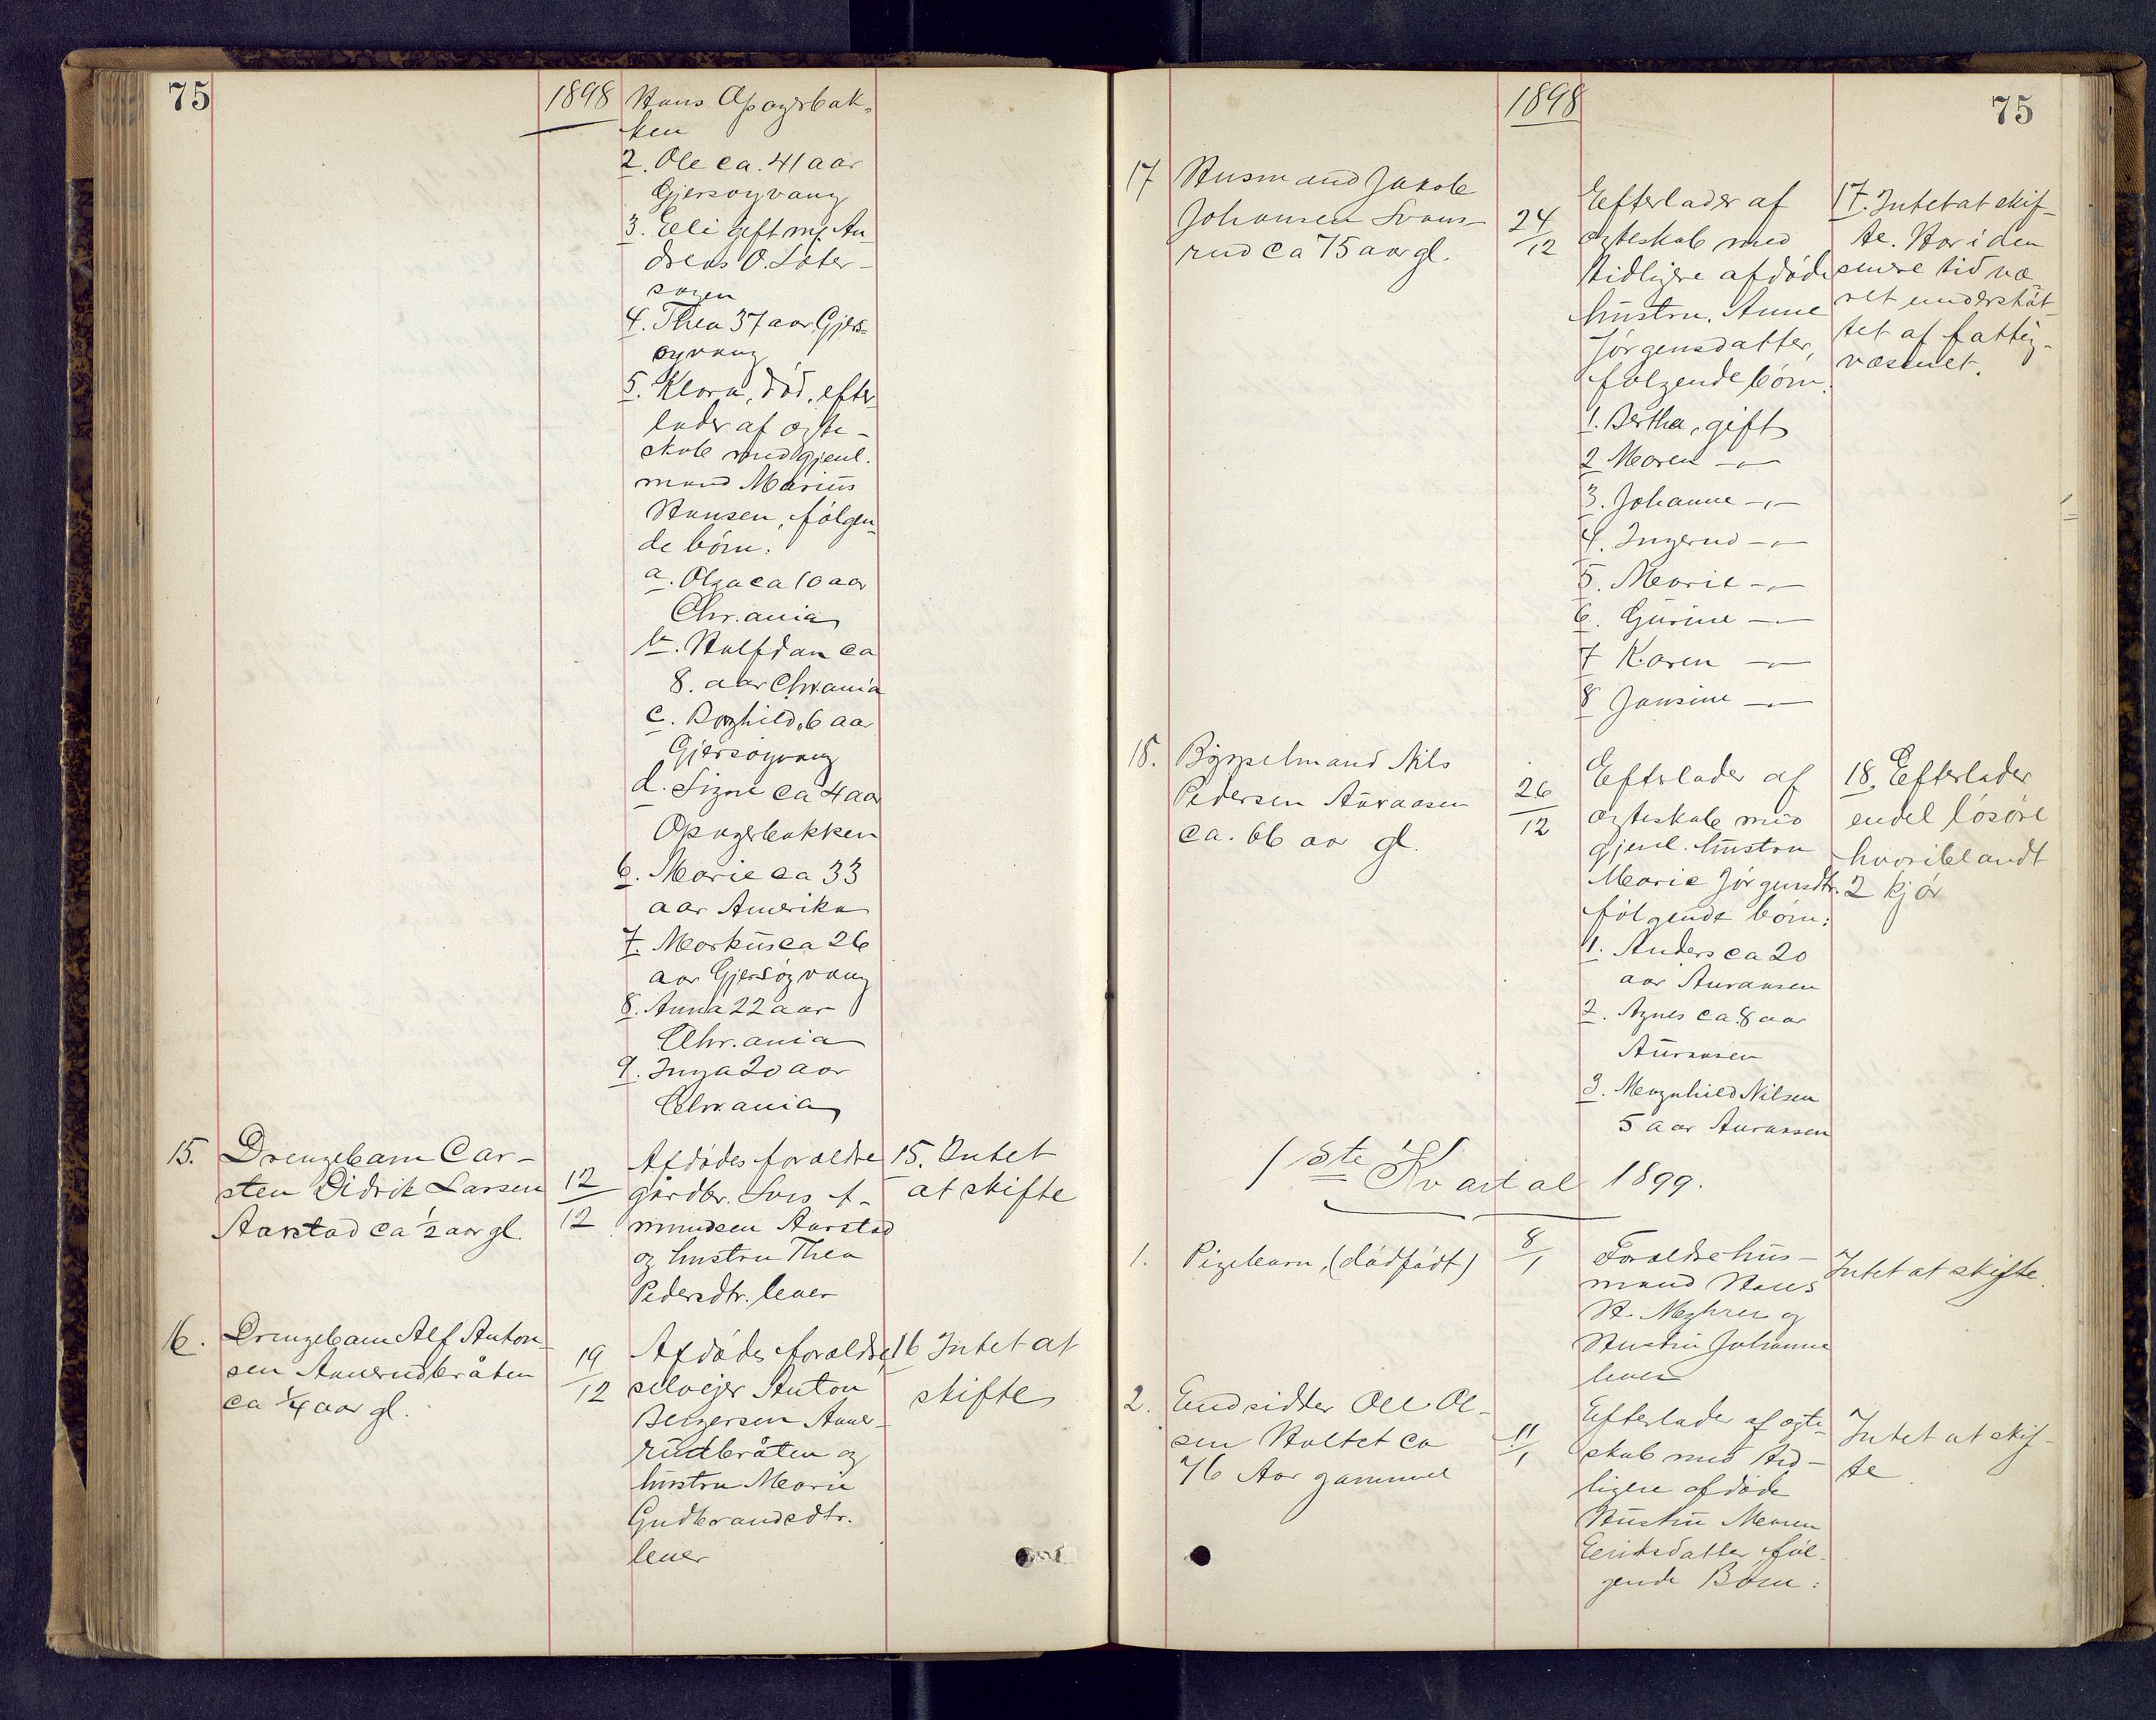 75
1898
Hans Opagerbak-
ken
2. Ole ca. 41 aar
Gjersøyvang
3. Eli gift m/ An-
dreas O. Sæter-
4. Thea 37 aar Gjers-
øyvang
5. Klara, død, efter-
lader af ægte-
skab med gjenl.
mand Marius
Hansen, følgen-
de børn:
a. Olga ca 10 aar
Chr.ania
b. Halfdan ca
8. aar Chr.ania
c. Borghild, 6 aar
Gjersøyvang
d. Signe ca 4 aar
Opagerbakken
6. Marie ca 33
aar Amerika
7. Markus ca 26
aar Gjersøyvang
8. Anna 22 aar
Chr.ania
9. Inga 20 aar
Chr.ania
15. Drengebarn Car-
sten Didrik Larsen
Aarstad ca 1/2 aar gl.
12/12
Afdødes forældre
gårdbr. Lars A-
mundsen Aarstad
og hustru Thea
Pedersdtr. lever
15. Intet
at skifte
16. Drengebarn Alf Anton-
sen Aanerudbråten
ca 1/4 aar gl.
19/12
Afdødes forældre
selveier Anton
Bergersen Aaner-
rudbråten og
hustru Marie
Gudbrandsdtr.
lever
16 Intet at
skifte
1898
75
17 Husmand Jakob
Johansen Svens-
rud ca 75 aar gl.
24/12
Efterlader af
ægteskab med
tidligere afdøde
hustru, Anne
Jørgensdatter,
følgende børn:
1. Bertha, gift
2 Maren -"-
3. Johanne -"-
4. Ingerud -"-
5. Marie -"-
6. Gurine -"-
7 Karen -"-
8 Jansine -"-
17. Intet at skif-
te. Har i den
senere tid væ-
ret understøt-
tet af fattig-
væsenet.
18. Bygselmand Nils
Pedersen Auraasen
ca. 66 aar gl.
26/12
Efterlader af
ægteskab med
gjenl. hustru
Marie Jørgensdtr.
følgende børn:
1. Anders ca 20
aar Auraasen
2. Agnes ca 8 aar
Auraasen
3. Magnhild Nilsen
5 aar Auraasen
18. Efterlader
endel løsøre
hvoriblandt
2 kjør
1ste Kvartal 1899.
1. Pigebarn, (dødfødt)
8/1
Forældre hus-
mand Hans
H. og
Hustru Johanne
lever
Intet at skifte.
2. Endsidder Ole Ol-
sen Holtet ca
76 Aar gammel
11/1
Efterlader af ægte-
skab med tid-
ligere afdøde
Hustru Maren
Eriksdatter føl-
gende Børn:
Intet at skif-
te